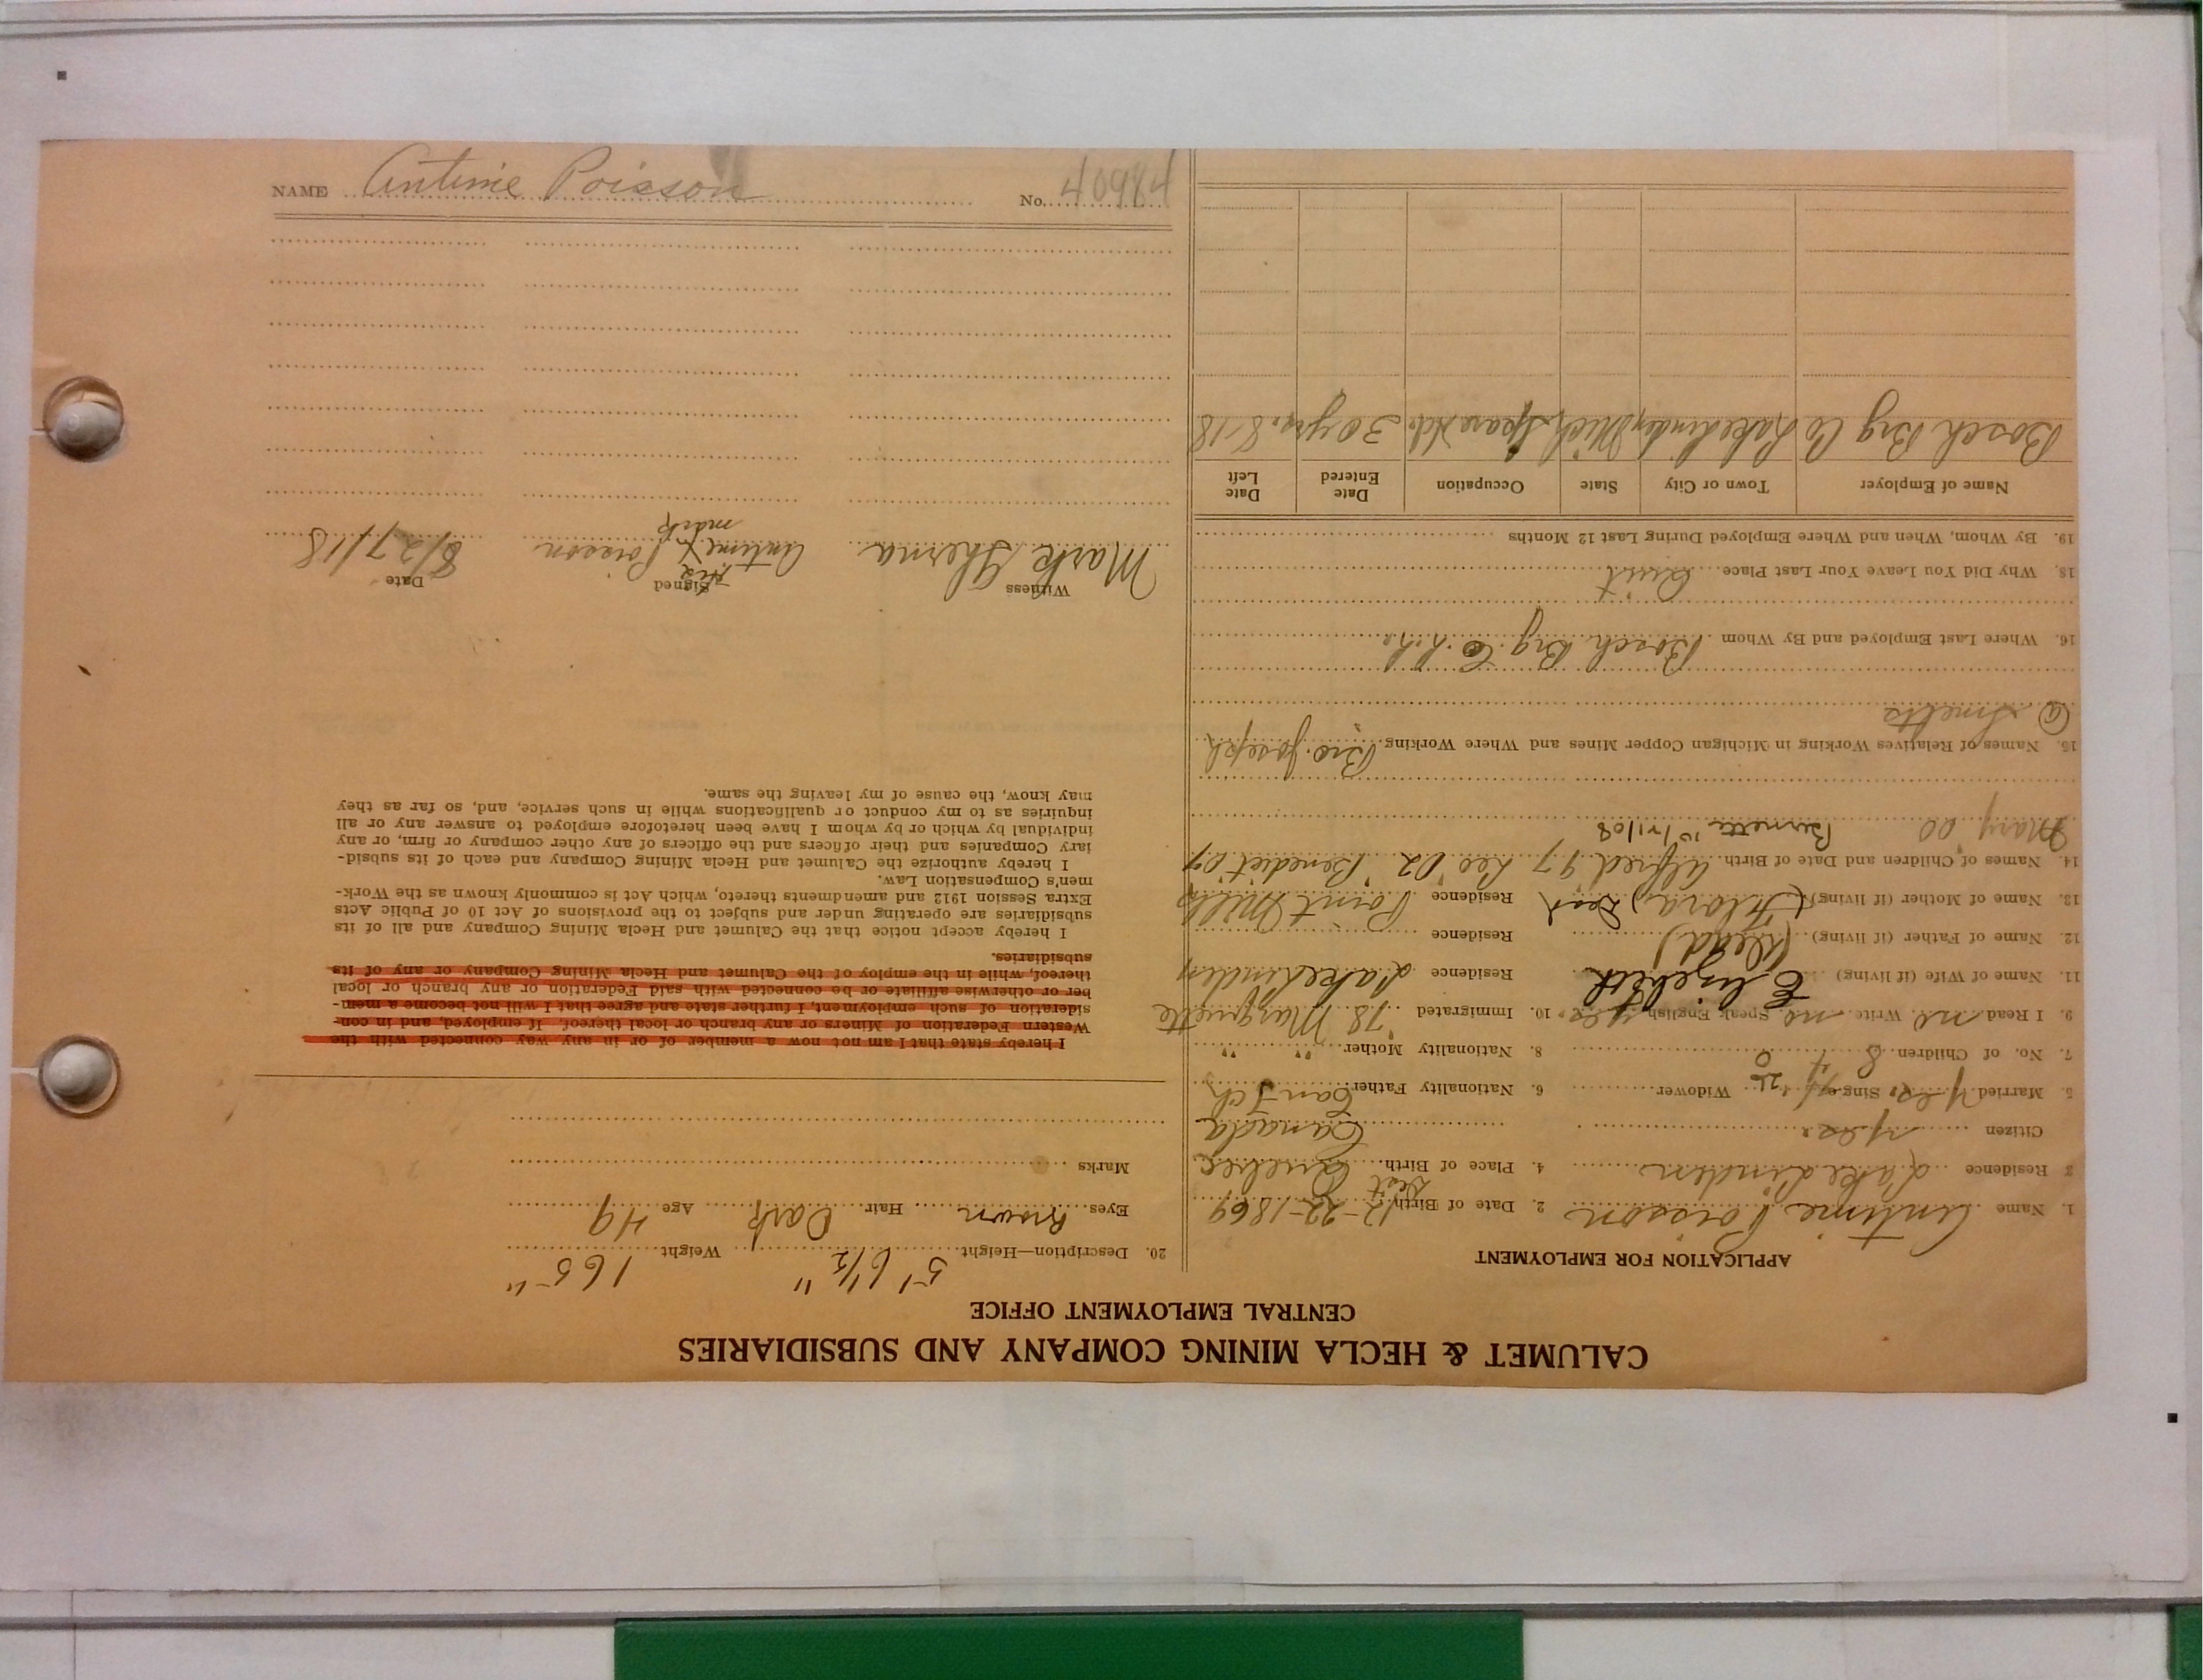 CALUMET & HECLA MINING COMPANY AND SUBSIDIARIES
CENTRAL EMPLOYMENT OFFICE
APPLICATION FOR EMPLOYMENT
1. Name Antime Poisson 2. Date of Birth 12-22-1869
3 Residence Lake Linden 4. Place of Birth Quebec
Citizen yes Canada
5. Married yes Single Widower 6. Nationality Father Can Fch
7. No. of Children 8 8. Nationality Mother " "
9. I Read no Write no Speak English yes 10. Immigrated 78 Marquette
11. Name of Wife (if living) Elizebeth Residence Lake Linden
12. Name of Father (if living) (Dead) Residence
13. Name of Mother (if living) (Flora) Dead Residence Point Mills
14. Names of Children and Date of Birth Alfred 97 Leo 02 Benedict 07
Mary 00 Bernette 10/21/08
15. Names of Relatives Working in Michigan Copper Mines and Where Working Bro. Joseph
@ Smelts
16. Where Last Employed and By Whom Bosch Brg Co L. L.
18. Why Did You Leave Your Last Place Quit
19. By Whom, When and Where Employed During Last 12 Months
Name of Employer Town or City State Occupation Date Entered Date Left
Bosch Brg Co Lake Linden Mich 30 yrs. 8-18
20. Description—Height 5' 6 1/2" Weight 165 "
Eyes Brown Hair Dark Age 49
Marks
I hereby state that I am not now a member of or in any way connected with the
Western Federation of Miners or any branch or local thereof. If employed, and in con-
sideration of such employment, I further state and agree that I will not become a mem-
ber or otherwise affiliate or be connected with said Federation or any branch or local
thereof, while in the employ of the Calumet and Hecla Mining Company or any of its
subsidiaries.
I hereby accept notice that the Calumet and Hecla Mining Company and all of its
subsidiaries are operating under and subject to the provisions of Act 10 of Public Acts
Extra Session 1912 and amendments thereto, which Act is commonly known as the Work-
men's Compensation Law.
I hereby authorize the Calumet and Hecla Mining Company and each of its subsid-
iary Companies and their officers and the officers of any other company or firm, or any
individual by which or by whom I have been heretofore employed to answer any or all
inquiries as to my conduct or qualifications while in such service, and, so far as they
may know, the cause of my leaving the same.
Witness Signed Date
His
Mark Antime X Poisson 8/27/18
mark
NAME Antime Poisson No. 40984